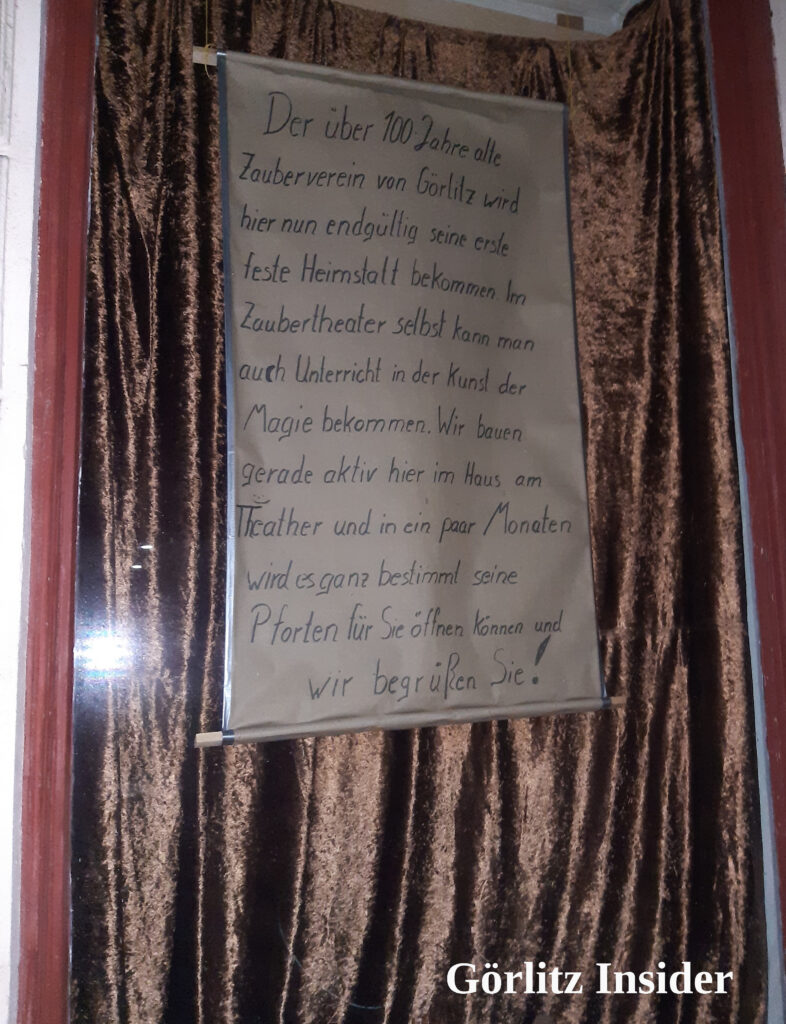 Der über 100 Jahre alte
Zauberverein von Görlitz wird
hier nun endgültig seine erste
feste Heimstatt bekommen. Im
Zaubertheater selbst kann man
auch Unterricht in der Kunst der
Magie bekommen. Wir bauen
gerade aktiv hier im Haus am
Theather und in ein paar Monaten
wird es ganz bestimmt seine
Pforten für Sie öffnen können und
wir begrüßen Sie!
Görlitz Insider